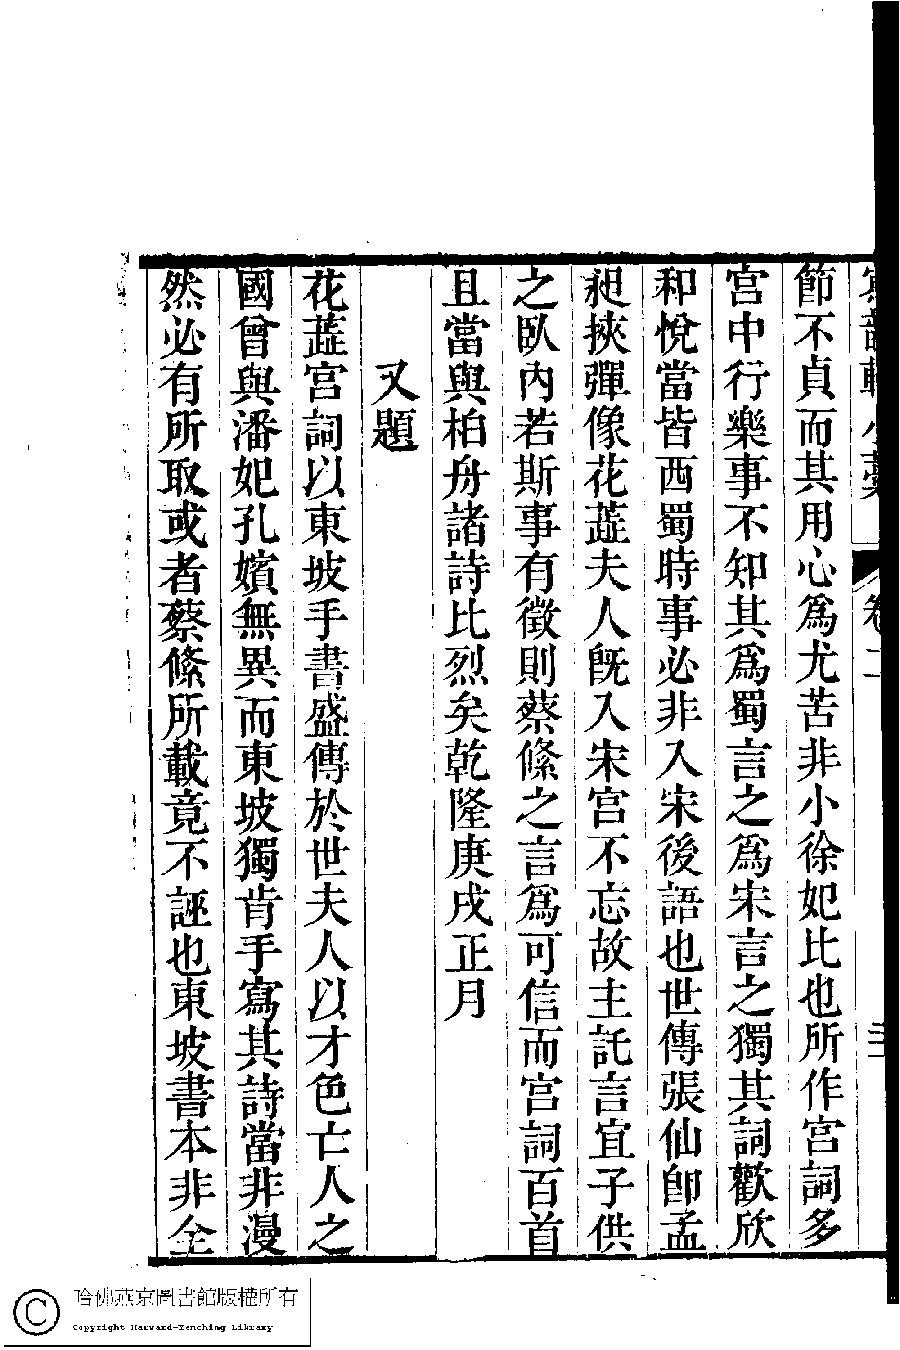 卷二
節不貞而其用心爲尤苦非小徐妃比也所作宮詞多
宮中行樂事不知其爲蜀言之爲宋言之獨其詞歡欣
和悅當皆西蜀時事必非入宋後語也世傳張仙卽孟
昶挾彈像花蕋夫人旣入宋宮不忘故主託言宜子供
之臥內若斯事有徵則蔡絛之言爲可信而宮詞百首
且當與柏舟諸詩比烈矣乾隆庚戌正月
又題
花蕋宮詞以東坡手書盛傳於世夫人以才色亡人之
國曾與潘妃孔嬪無異而東坡獨肯手寫其詩當非漫
然必有所取或者蔡絛所載竟不誣也東坡書本非全
哈佛燕京圖書館版權所有
Copyright Harvard-Yenching Library